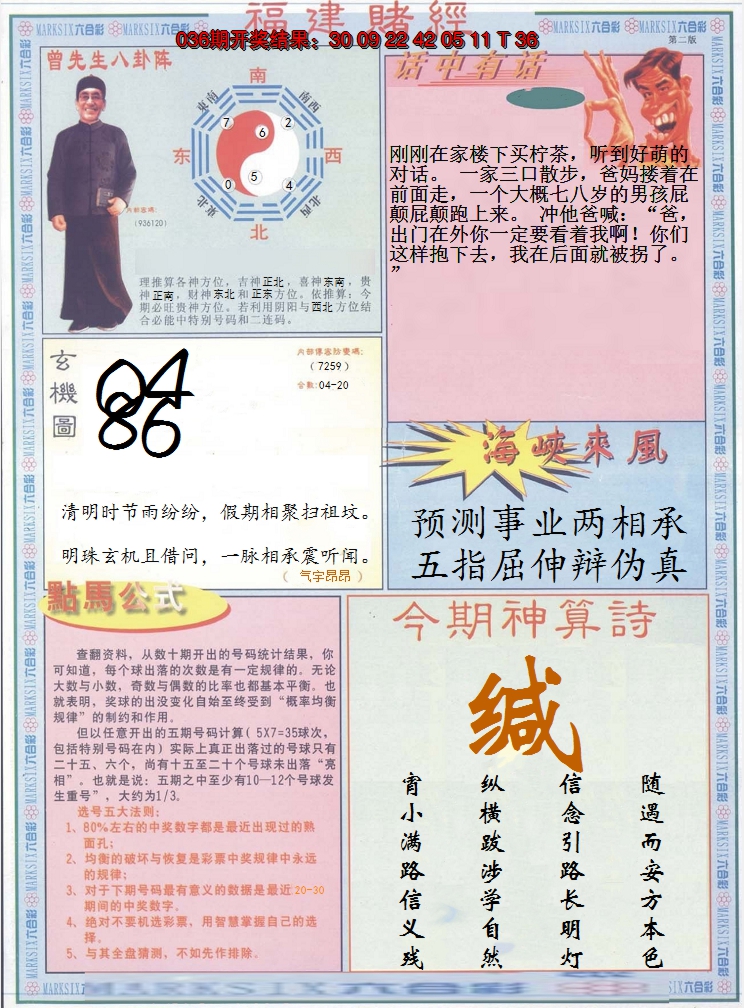 福建賭經
036期开奖结果：30 09 22 42 05 11 T 36
第二版
MARKSIX六合彩
曾先生八卦阵
南
东南
南西
7
6
2
东
西
0
5
4
東北
北西
北
内部密碼:
（936120）
理推算各神方位，吉神正北，喜神东南，贵
神正南，财神东北和正东方位。依推算：今
期必旺贵神方位。若利用阴阳与西北方位结
合必能中特别号码和二连码。
话中有话
刚刚在家楼下买柠茶，听到好萌的
对话。 一家三口散步，爸妈搂着在
前面走，一个大概七八岁的男孩屁
颠屁颠跑上来。 冲他爸喊：“爸，
出门在外你一定要看着我啊！你们
这样抱下去，我在后面就被拐了。
”
玄機圖
04
86
（7259）
合数:04-20
清明时节雨纷纷，假期相聚扫祖坟。
明珠玄机且借问，一脉相承震听闻。
（ 气宇昂昂 ）
海峡來風
预测事业两相承
五指屈伸辩伪真
點馬公式
查翻资料，从数十期开出的号码统计结果，你
可知道，每个球出落的次数是有一定规律的。无论
大数与小数，奇数与偶数的比率也都基本平衡。也
就表明，奖球的出没变化自始至终受到“概率均衡
规律”的制约和作用。
但以任意开出的五期号码计算（5X7=35球次，
包括特别号码在内）实际上真正出落过的号球只有
二十五、六个，尚有十五至二十个号球未出落“亮
相”。也就是说：五期之中至少有10—12个号球发
生重号”，大约为1/3。
选号五大法则：
1、80%左右的中奖数字都是最近出现过的熟
面孔；
2、均衡的破坏与恢复是彩票中奖规律中永远
的规律；
3、对于下期号码最有意义的数据是最近20-30
期间的中奖数字。
4、绝对不要机选彩票，用智慧掌握自己的选
择。
5、与其全盘猜测，不如先作排除。
今期神算詩
缄
随遇而安方本色
信念引路长明灯
纵横跋涉学自然
宵小满路信义残